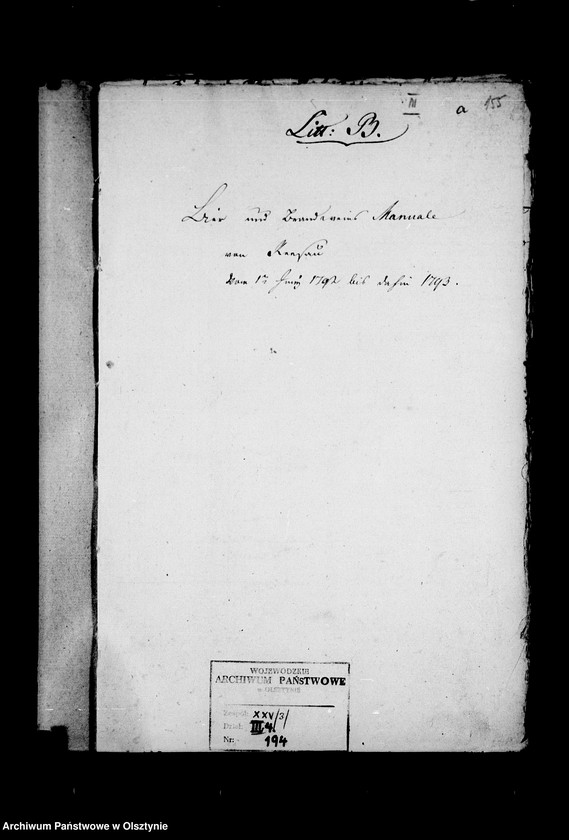 III a 155
Litt: B.
Bier und Brandtweins Manuale
von
vom 1ten Juny 1792 bis dahin 1793.
WOJEWÓDZKIE
ARCHIWUM PAŃSTWOWE
w OLSZTYNIE
Zespół: XXV/3/
Dział: III.4
Nr: 194
Archiwum Państwowe w Olsztynie